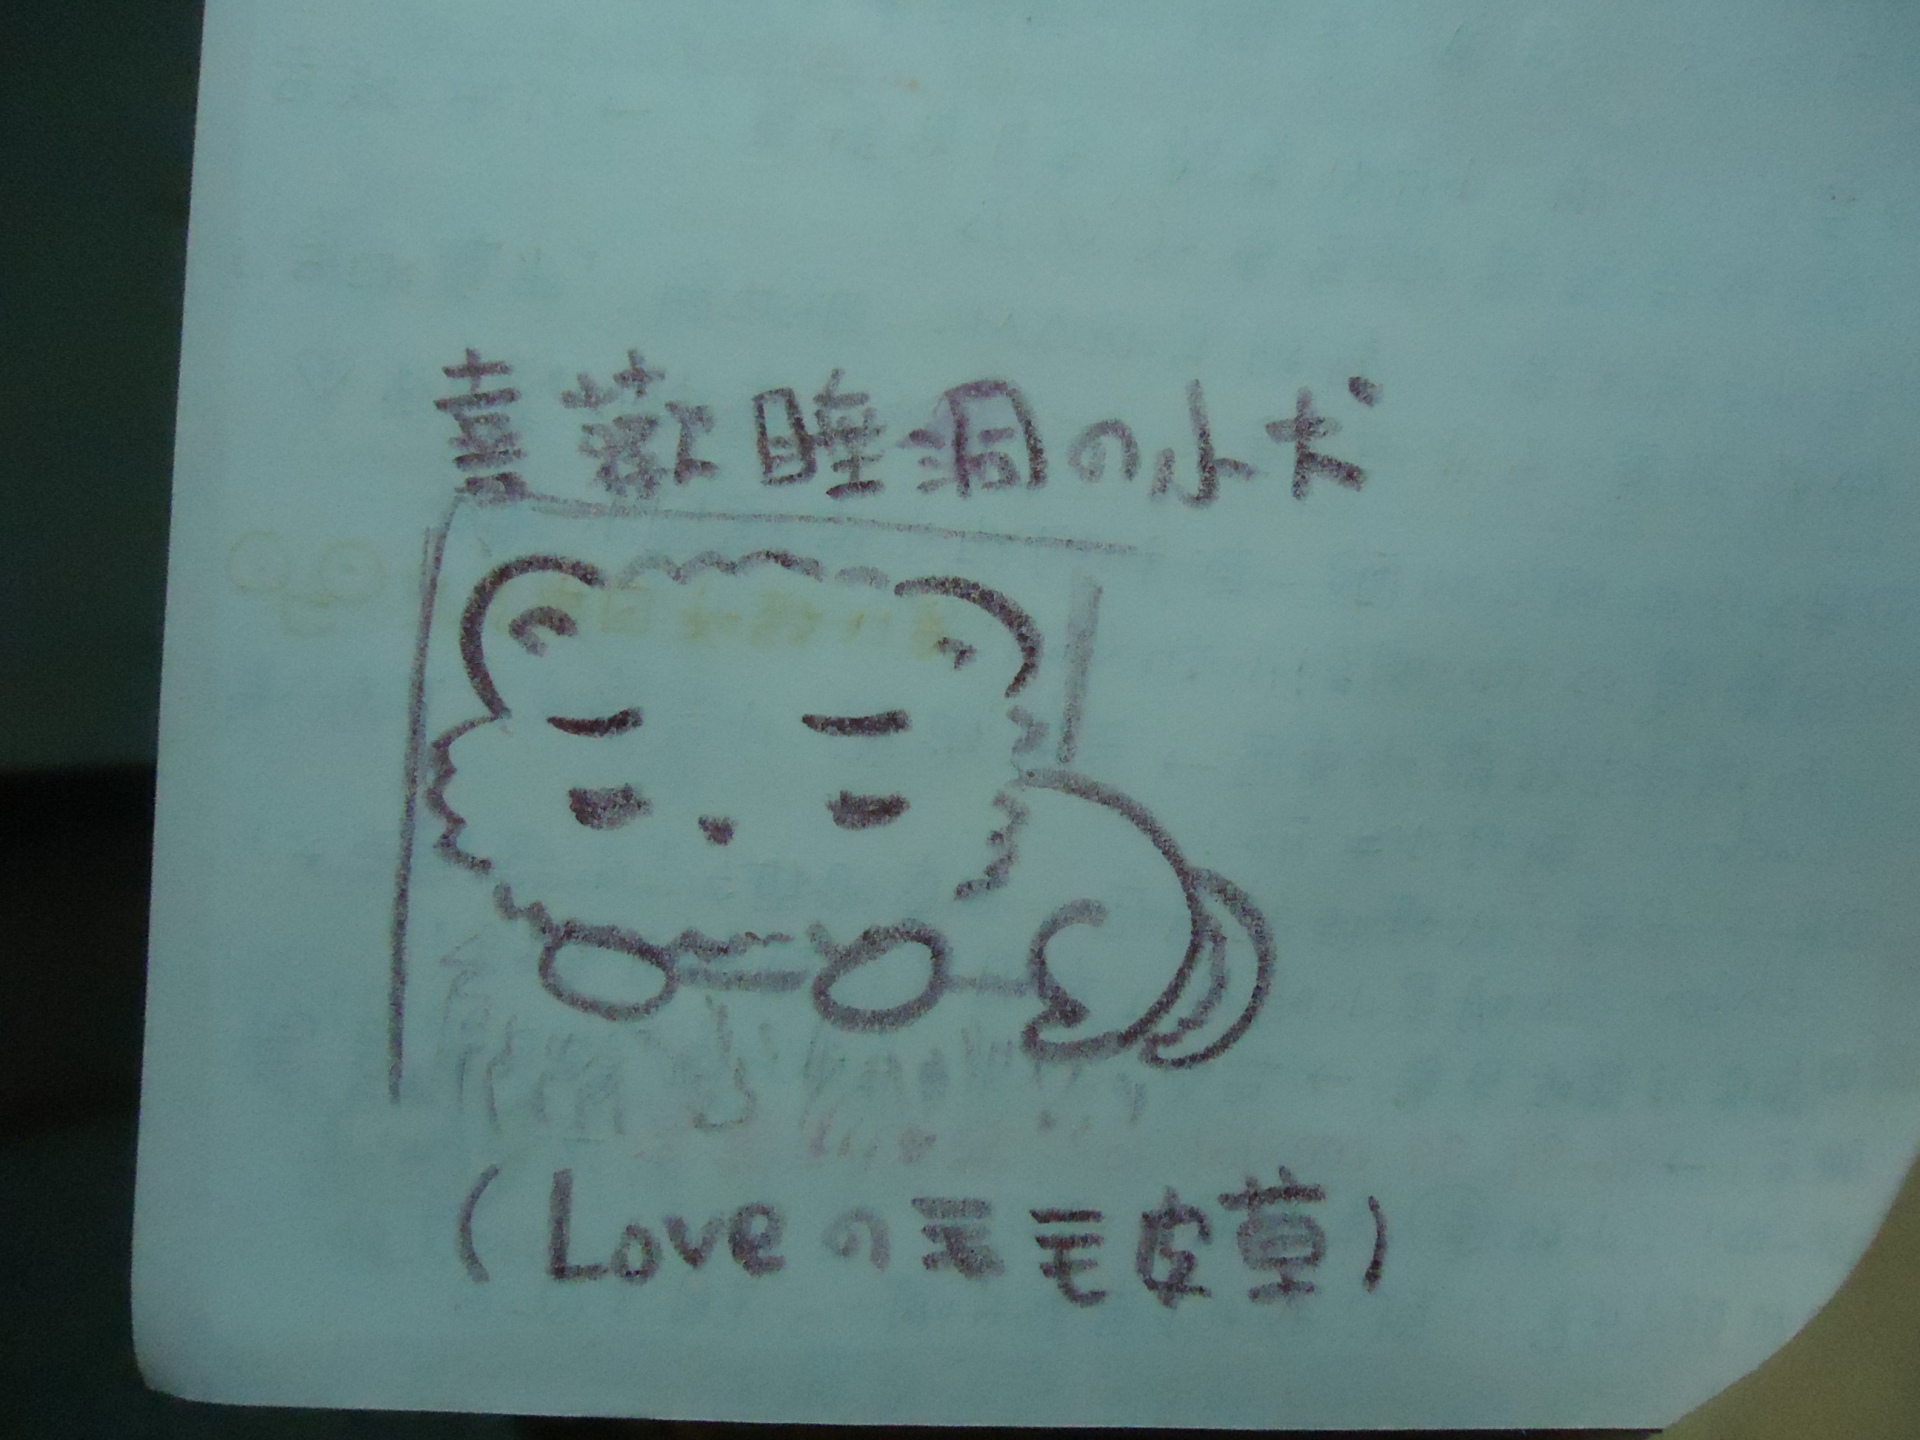 喜歡睡洞の小犬
(Loveの毛毛皮草)